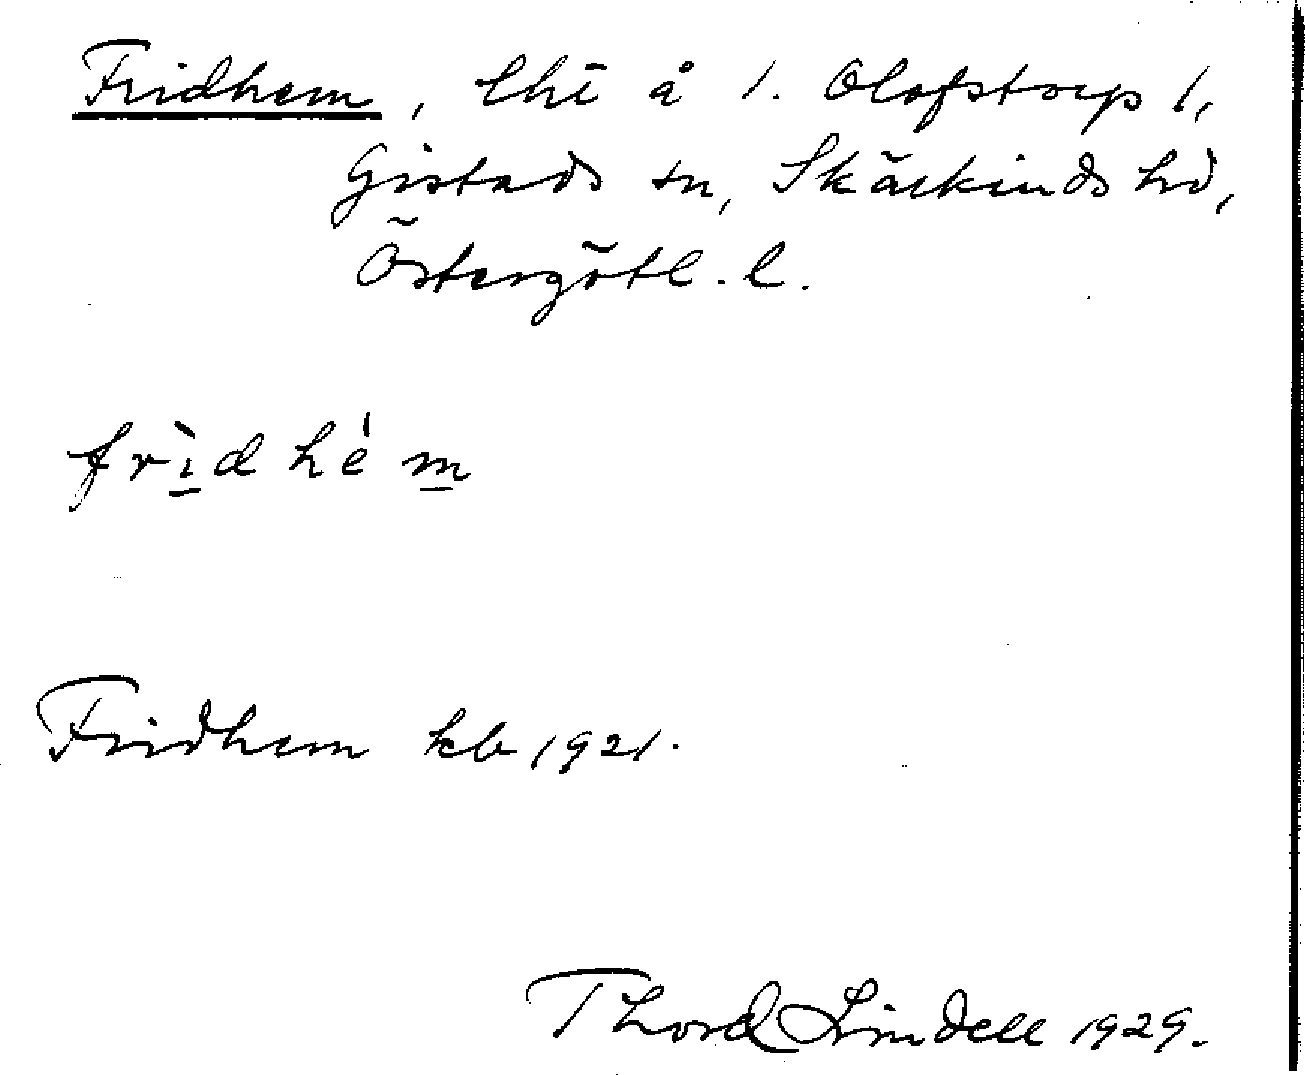 Fridhem, lht å 1. Olofstorp 1,
Gistads sn, Skärkinds hd,
Östergötl. l.
frìdhém
Fridhem kb 1921.
Thord Lindell 1929.